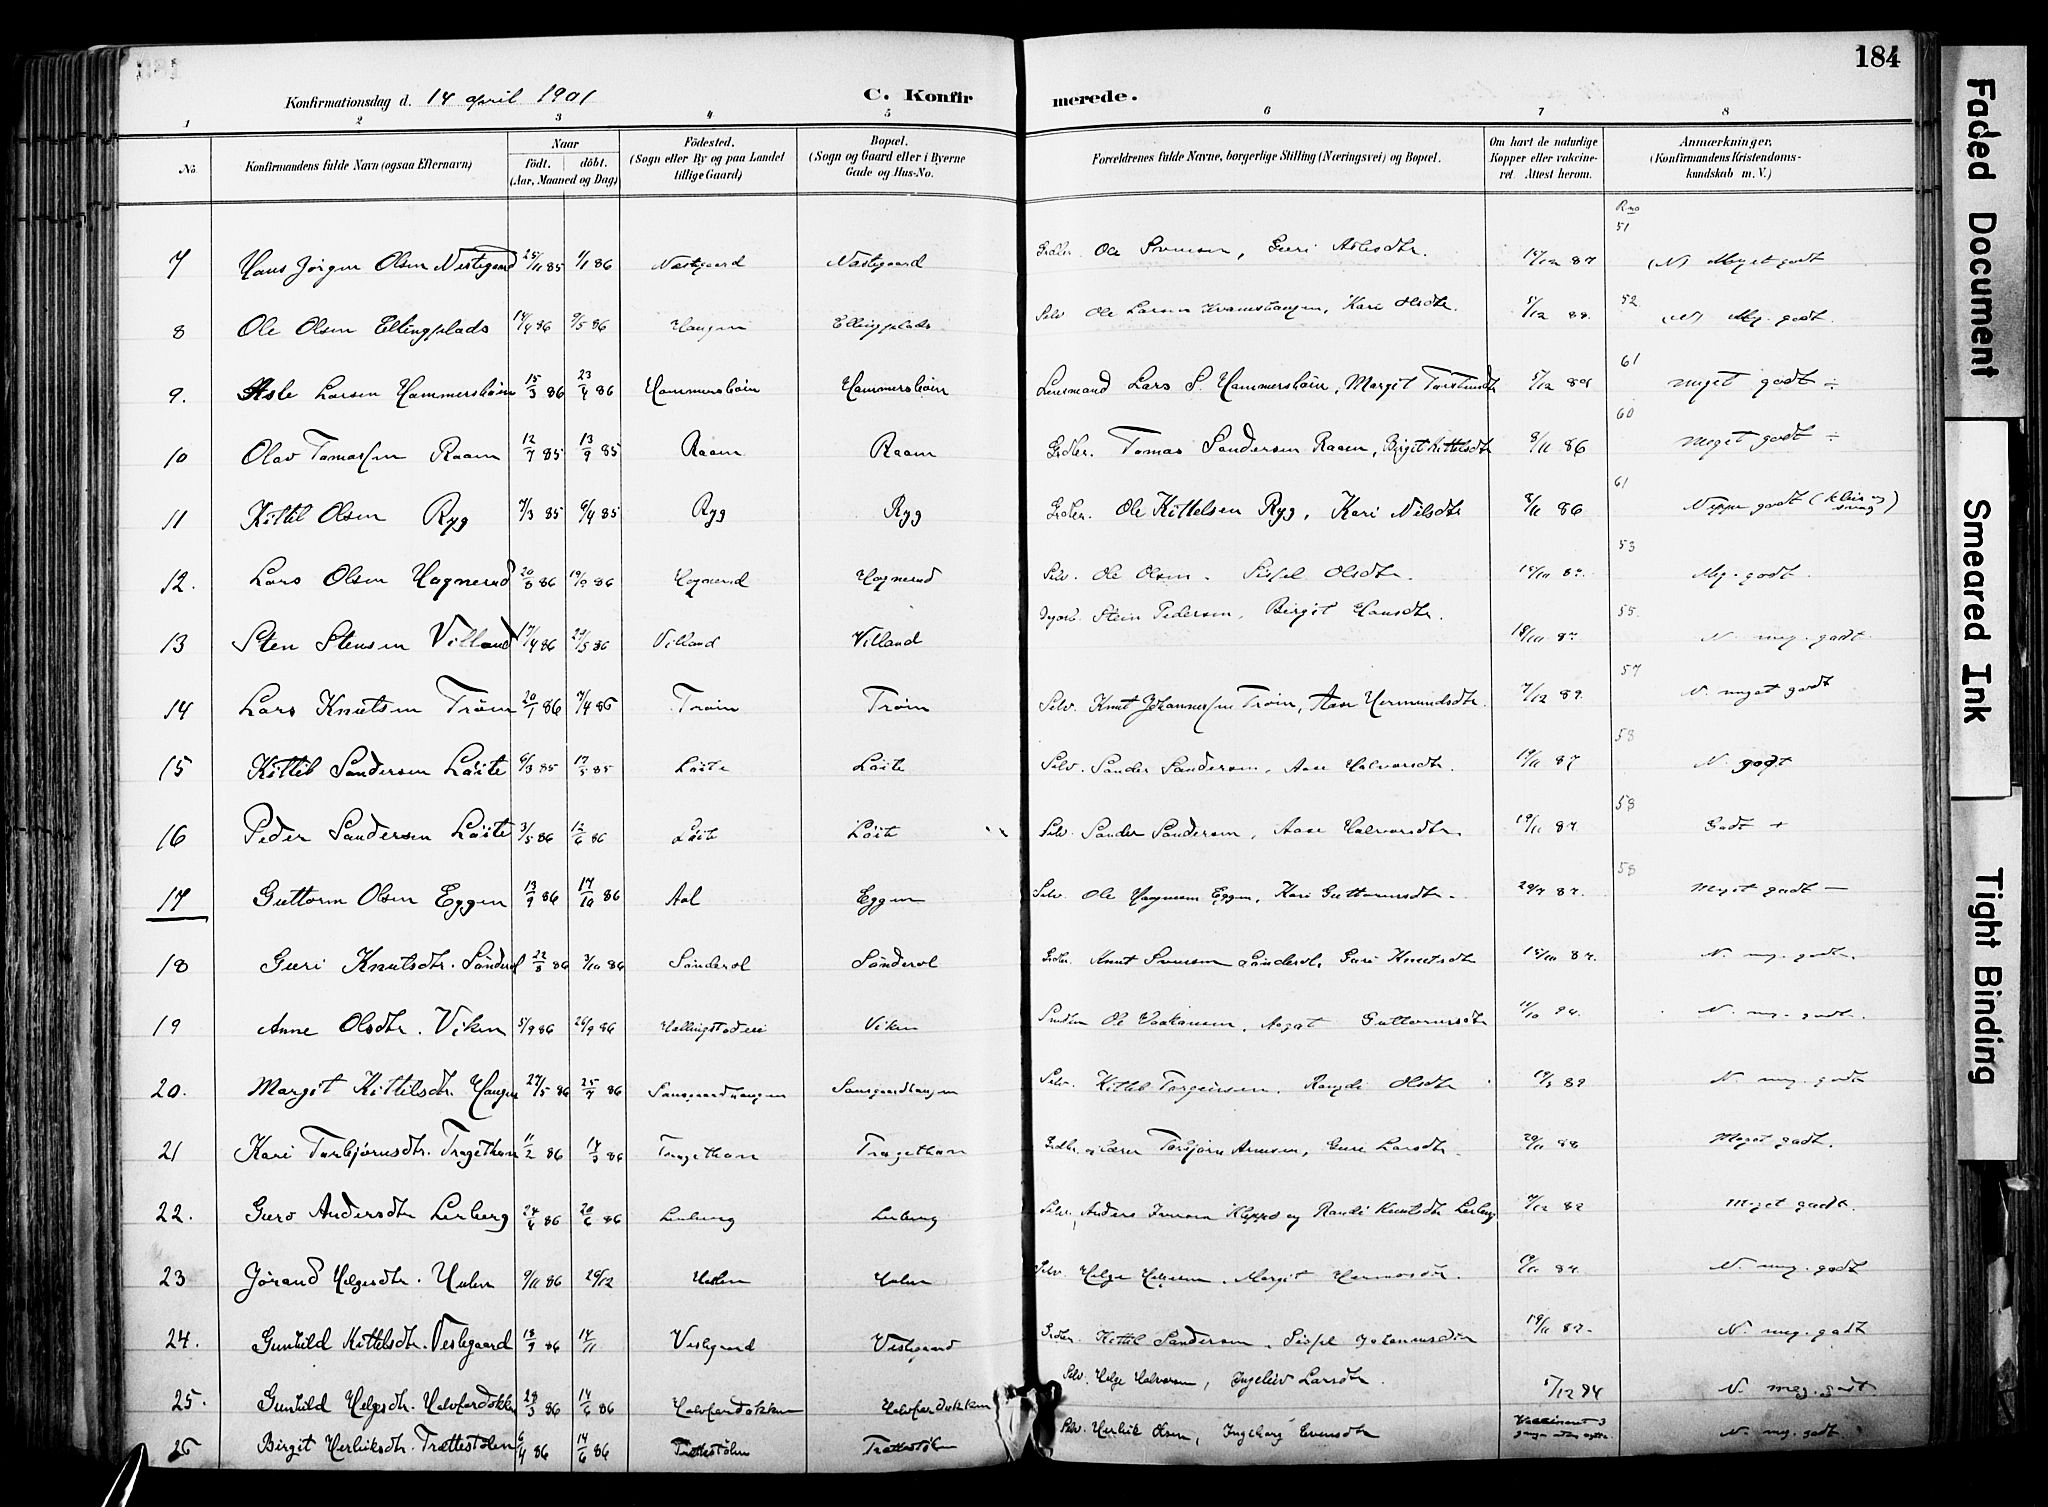 184
Konfirmationsdag d. 14 april 1901 C. Konfirmerede.
1 2 3 4 5 6 7 8
No. Konfirmandens fulde Navn (ogsaa Efternavn) Naar født. døbt. (Aar, Maaned og Dag) Fødested. (Sogn eller By og paa Landet tillige Gaard) Bopæl. (Sogn og Gaard eller i Byerne Gade og Hus-No. Forældrenes fulde Navne, borgerlige Stilling (Næringsvei) og Bopæl. Om havt de naturlige Kopper eller vakcineret. Attest herom. Anmærkninger, (Konfirmandens Kristendomskundskab m. V.)
7 Hans Jørgen Olsen Nestegaard 25/11 85 1/1 86 Nestegaard Nestegaard Ole Svensen, Guri Aslesdtr. 87 51 (N) Meget godt
8 Ole Olsen Ellingplads 14/4 86 9/5 86 Haugen Ellingplads Selv. Ole Larsen Kvamshaugen, Kari Olsdtr. 5/12 52 (N) Mg. godt.
9. Asle Larsen Hammersbøin 15/3 86 23/4 86 Hammersbøin Hammersbøin Lensmand Lars S. Hammersbøin, Margit Torstendtr 5/12 89 61 meget godt ÷
10 Olav Tomassen Raaen 12/7 85 13/9 85 Raaen Raaen Tomas Sandersen Raaen, Birgit Kittelsdtr 8/11 86 60 Meget godt ÷
11 Kittil Olsen Ryg 7/3 85 6/4 85 Ryg Ryg Ole Kittelsen Ryg, Kari Nilsdtr 8/11 86 61 Neppe godt
12. Lars Olsen Hognerud 20/8 86 19/9 86 Hognerud Hognerud Selv. Ole Olsen. Sissel Olsdtr. 53 Mg. godt.
13 Sten Stensen Villand 17/4 86 86 Villand Villand Stein Pedersen, Birgit Hansdtr. 55. N. meg. godt.
14 Lars Knutsen Trøin 20/1 86 7/4 86 Trøin Trøin Selv. Knut Johannessen Trøin, Aase Hermundsdtr. 7/12 57 N. meget godt
15 Kittil Sandersen Løite 6/3 85 17/5 85 Løite Løite Selv. Sander Sandersen, Aase Halvorsdtr. 19/11 87 58 N. godt
16 Peder Sandersen Løite 3/5 86 12/6 86 Løite Løite Selv. Sander Sandersen, Aase Halvorsdtr. 19/11 87. 58 Godt +
17 Guttorm Olsen Eggen 13/9 86 17/10 86 Aal Eggen Selv. Ole Haugesen Eggen, Kari Guttormsdtr. 58 Meget godt —
18 Guri Knutsdtr. Sønderol 22/8 86 3/10 86 Sønderol Sønderol Knut Svensen Sønderol, Guri Knutsdtr 87. N. mg. godt.
19 Anne Olsdtr. Viken 5/9 86 26/9 86 Viken Ole Haakonsen, Aagot Guttormsdtr 11/10 94. N. mg. godt.
20. Margit Kittilsdtr. Haugen 27/5 86 25/7 86 Sansgaardhaugen Sansgaardhaugen Selv. Kittil Torgeirsen. Rangdi Olsdtr N. mg. godt
21 Kari Torbjørnsdtr. Tragethon 11/2 86 14/3 86 Tragethon Tragethon og Lærer Torbjørn Arnesen, Guri Larsdtr. 88 Meget godt.
22. Guro Andersdtr Lerberg 24/4 86 20/6 86 Lerberg Lerberg Selv. Anders Iversen Kleppo og Randi Knutsdtr Lerberg 7/12 Meget godt.
23 Jørand Helgesdtr. Hulen 9/11 86 26/12 Hulen Hulen Selv. Helge Helgesen. Margit N. mg. godt
24. Gunhild Kittilsdtr. Vestegaard 18/9 86 14/11 Vestegaard Vestegaard Kittil Sandersen. Sissel 19/11 87. N. mg. godt
25. Gunhild Helgesdtr. Halvfardokken 28/3 86 14/6 86 Halvfardokken Halvfardokken Selv. Helge Halvorsen, Ingeleiv Larsdtr. 5/12 94 N. meg. godt
26 Birgit Herbiksdtr. Trættestølen 6/4 86 14/6 86 Trættestølen Trættestølen Selv. Herbik Olsen, Ingeborg Evensdtr Vakcineret 3 gange uten N. mg. godt
Faded Document
Smeared Ink
Tight Binding